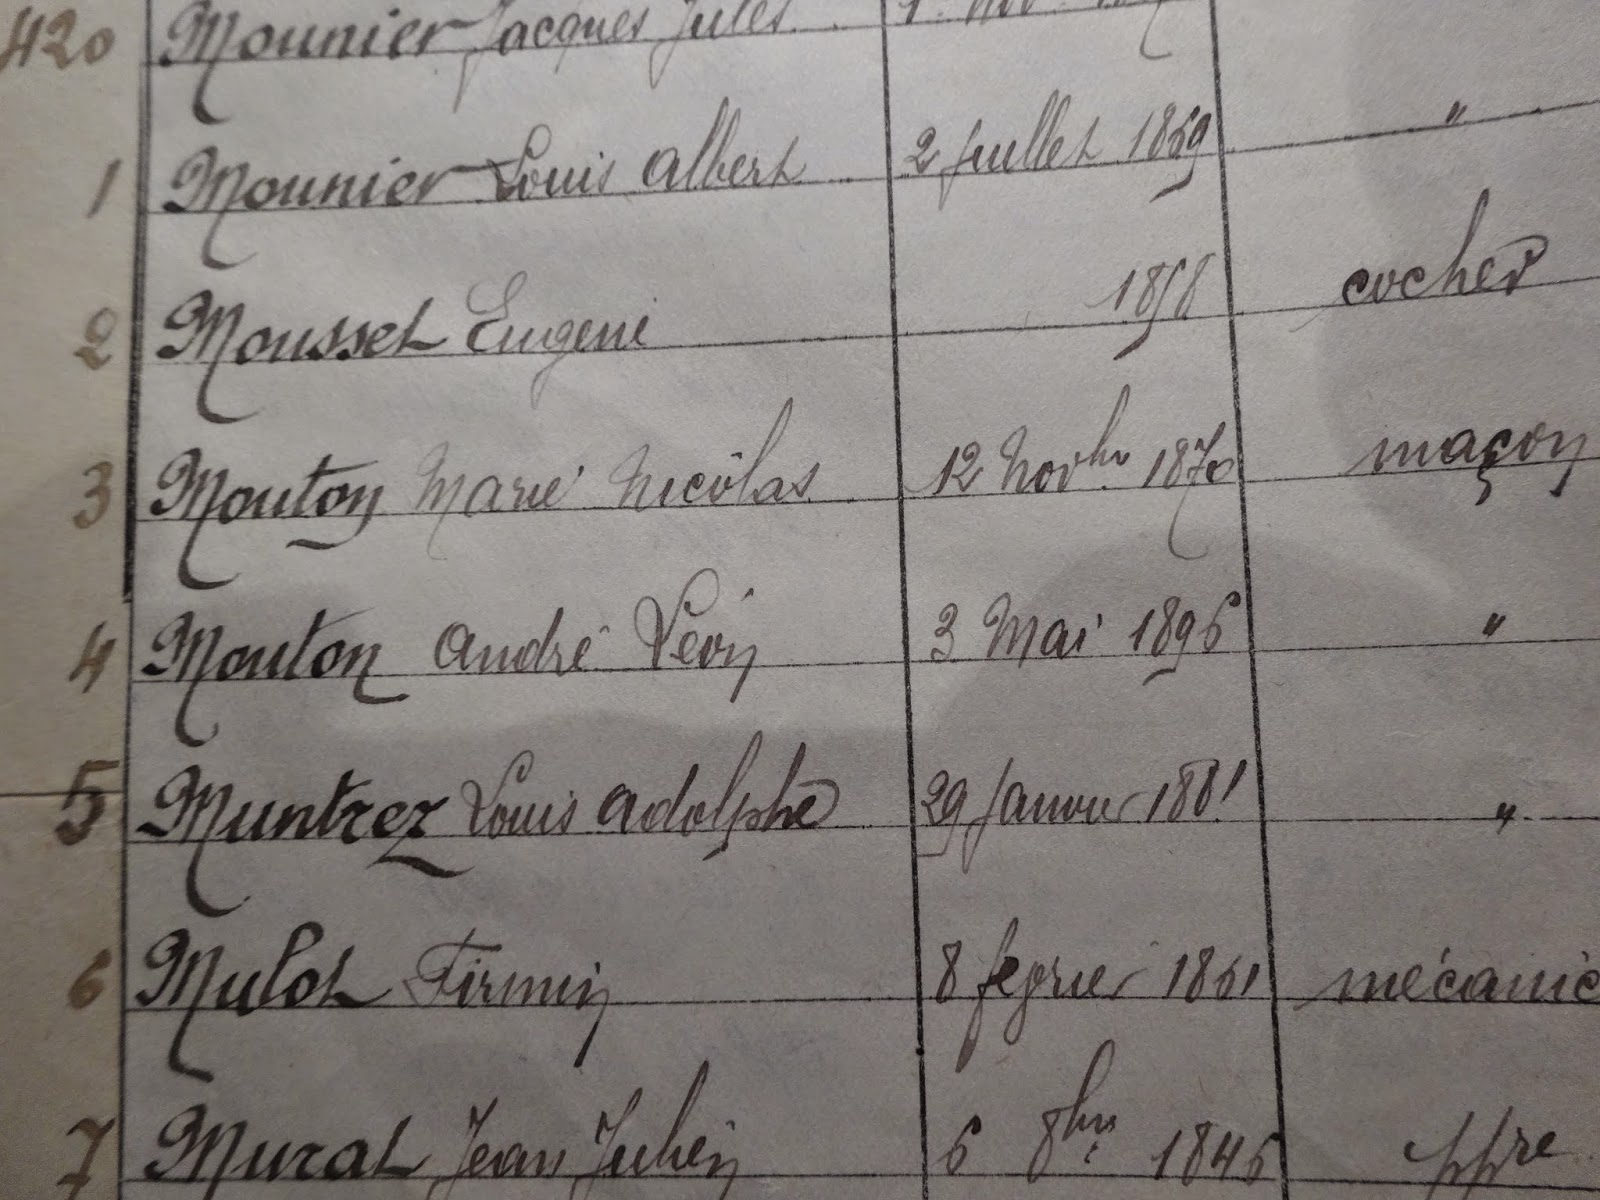 420 Mounier Jacques Jules
1 Mounier Louis Albert 2 Juillet 1869 "
2 Mousset Eugène 1858 cocher
3 Mouton Marie Nicolas 12 Novbre 1870 maçon
4 Mouton André Lévy 3 Mai 1896 "
5 Muntrez Louis Adolphe 29 Janvier 1881 "
6 Mulot Firmin 8 février 1861 mécanic
7 Murat Jean Julien 6 8bre 1846 ppre